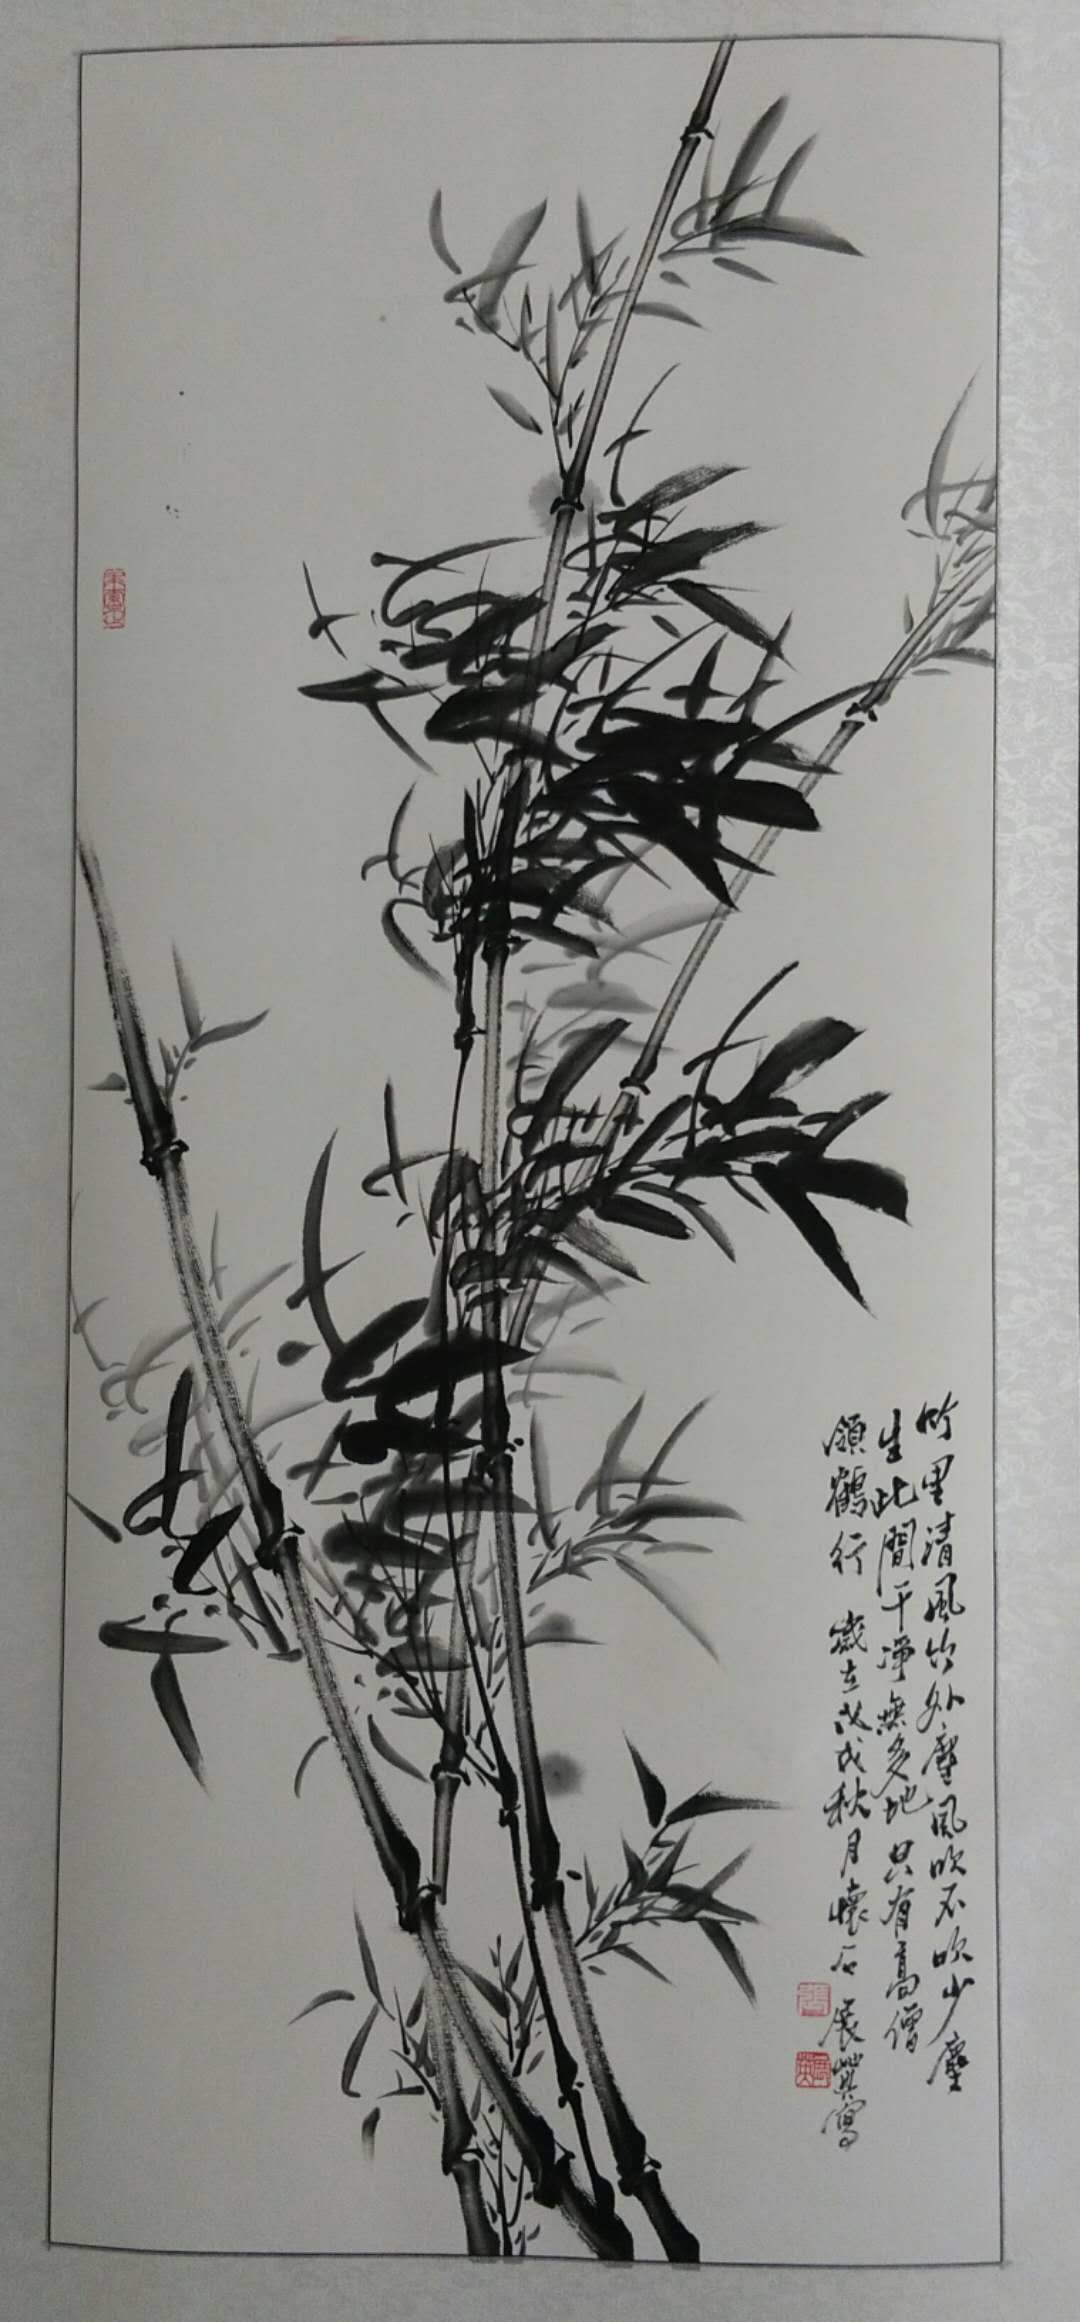 竹里清風竹外塵風吹不吹少塵
生此間干淨無多地只有高僧
領鶴行 歲在戊戌秋月懷石 展
寫